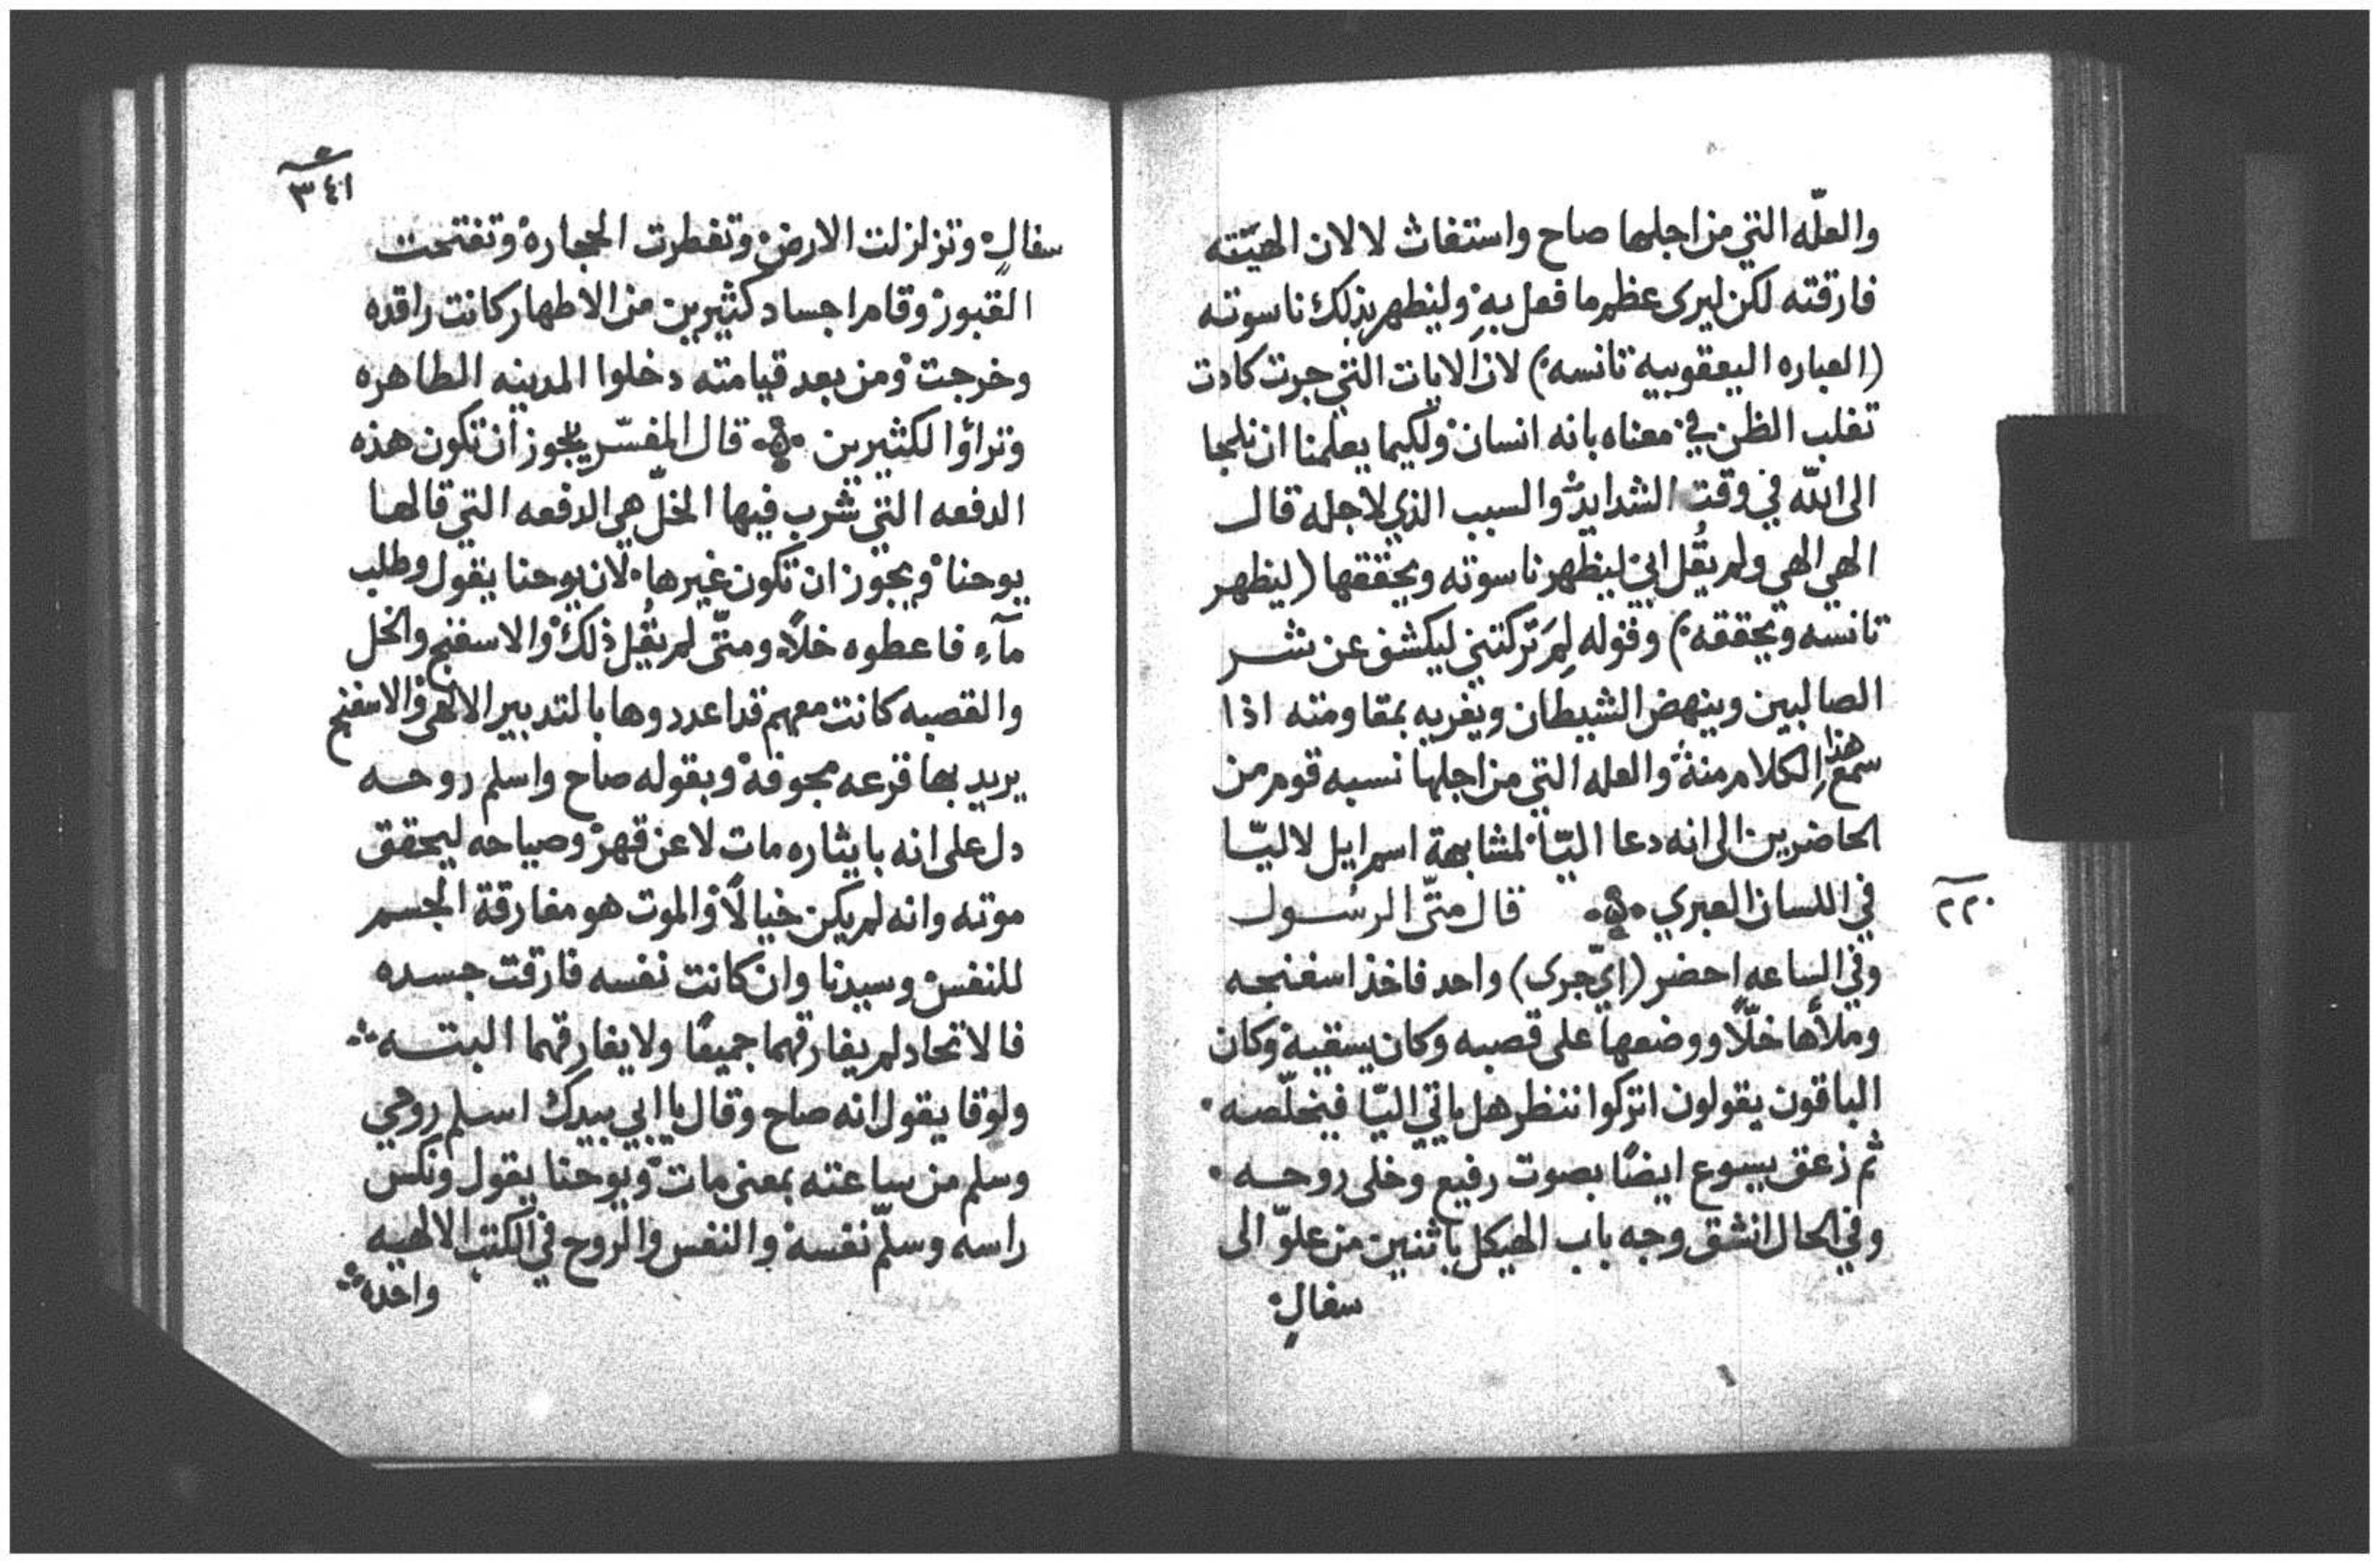 والعلّه التي من اجلها صاح واستغاث لا لان الهيّته
فارقته لكن ليرى عظم ما فعل به ولينظهر بذلك ناسوته
(العباره اليعقوبيه تانسه) لان الايات التي جرت كادت
تغلب الظن في معناه بانه انسان ولكيما يعلمنا ان نلجا
الى الله في وقت الشدايد والسبب الذي لاجله قال
الهي الهي ولم يقُل ابي لينظهر ناسوته ويحققها (لينظهر
تانسه ويحققه) وقوله لِمَ تركتني ليكشف عن شر
الصالبين وينهض الشيطان ويغريه بمقاومته اذا
سمع هذا الكلام منه والعله التي من اجلها نسبه قوم من
الحاضرين الى انه دعا اليّا لمشابهة اسم ايل لاليّا
في اللسان العبري قال متّى الرسول
٢٢٠
وفي الساعه احضر (ايّ جرى) واحد فاخذ اسفنجه
وملأها خلّاً ووضعها على قصبه وكان يسقيه وكان
الباقون يقولون اتركوا ننظر هل ياتي اليّا فيخلّصه
ثم زعق يسوع ايضًا بصوت رفيع وخلى روحه
وفي الحال انشق وجه باب الهيكل باثنين من علوّ الى
سفالٍ
٣٤١
سفالٍ وتزلزلت الارض وتفطرت الحجاره وتفتحت
القبور وقام اجساد كثيرين من الاطهار كانت راقده
وخرجت ومن بعد قيامته دخلوا المدينه الطاهره
وتراؤا لكثيرين قال المفسّر يجوز ان تكون هذه
الدفعه التي شرب فيها الخلّ هي الدفعه التي قالها
يوحنا ويجوز ان تكون غيرها لان يوحنا يقول وطلب
مآءِ فاعطوه خلاً ومتّى لم يقُل ذلك والاسفنج والخل
والقصبه كانت معهم قد اعددوها بالتدبير الالهي والاسفنج
يريد بها قرعه مجوفة وبقوله صاح واسلم روحه
دل على انه بايثاره مات لا عن قهر وصياحه ليحقق
موته وانه لم يكن خيالاً والموت هو مفارقة الجسم
للنفس وسيدنا وان كانت نفسه فارقت جسده
فالاتحاد لم يفارقهما جميعًا ولا يفارقهما البته
ولوقا يقول انه صاح وقال يا ابي بيدك اسلم روحي
وسلم من ساعته بمعنى مات ويوحنا يقول ونكس
راسه وسلّم نفسه والنفس والروح في الكتب الالهيه
واحده